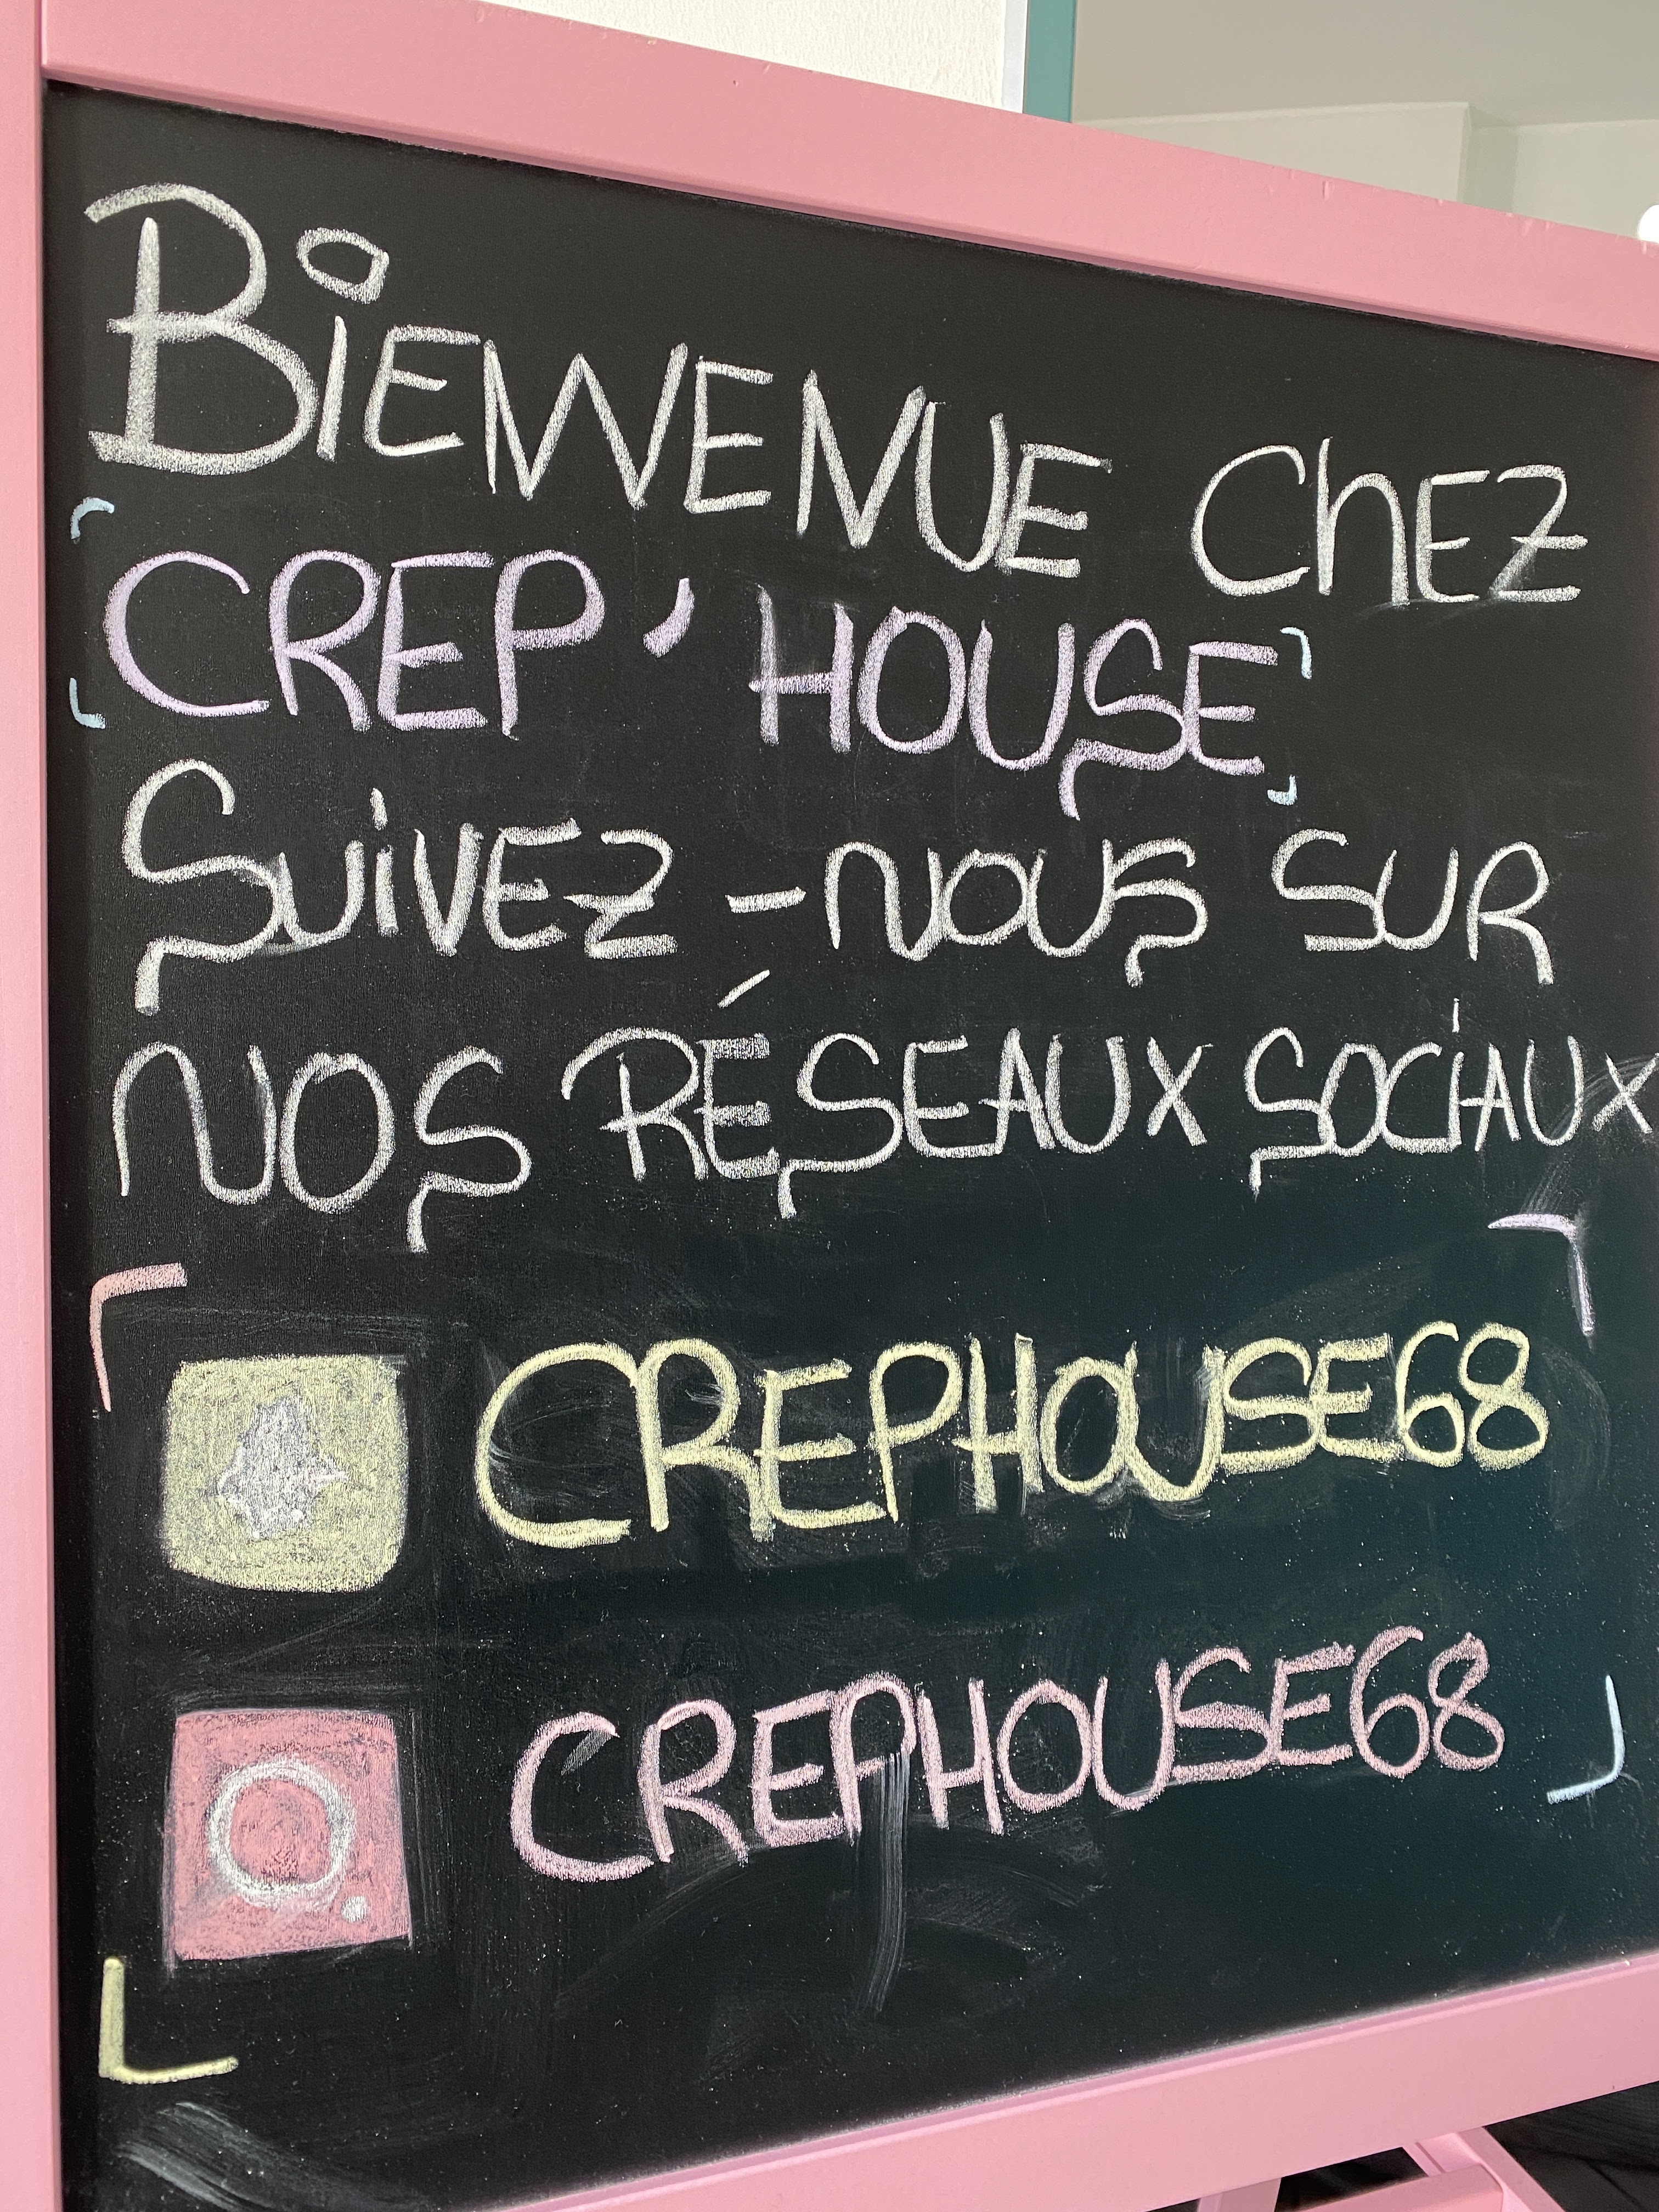 BiENVENUE ChEZ
CREP'HOUSE
SUiVEZ-NOUS SUR
NOS RÉSEAUX SOCiAUX
CREPHOUSE68
CREPHOUSE68